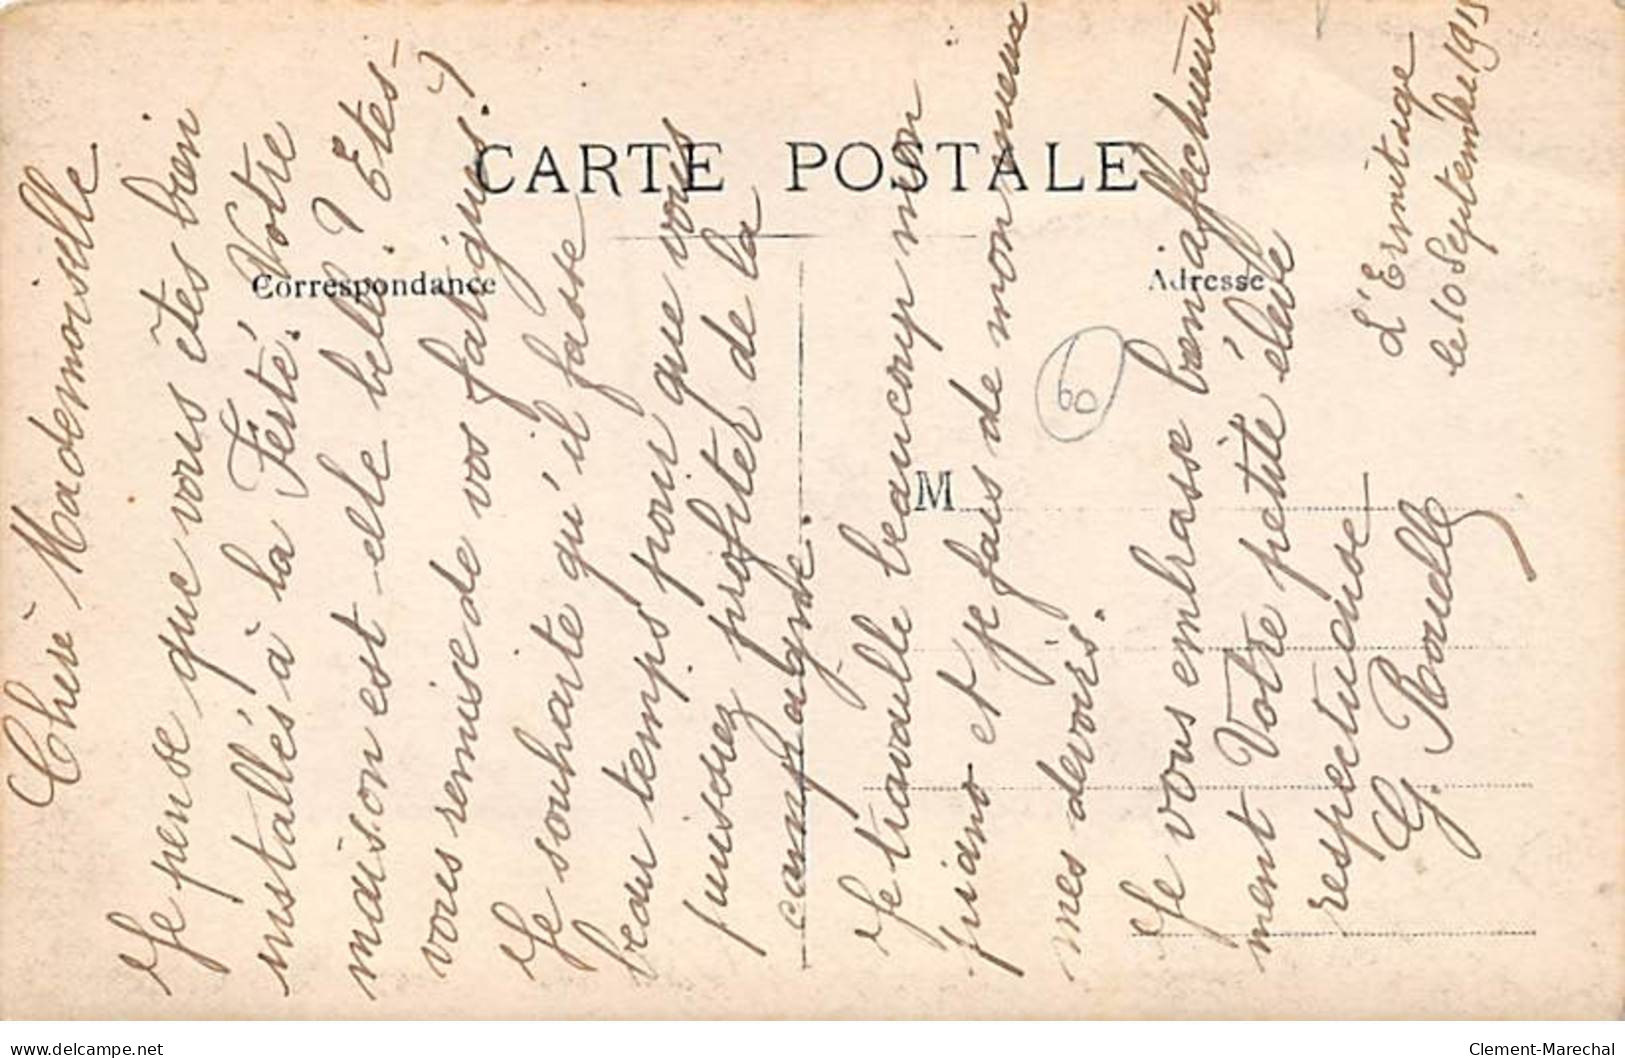 CARTE POSTALE
Correspondance
Adresse
M
L'Ermitage
le 10 Septembre 1915
Chère Mademoiselle
Je pense que vous êtes bien
installés à la Ferté. Votre
maison est-elle belle? Etes-
vous remise de vos fatigues?
Je souhaite qu'il fasse
beau temps pour que vous
puissiez profiter de la
campagne.
Je travaille beaucoup mon
piano et je fais de mon mieux
mes devoirs.
Je vous embrasse bien affectueuse
ment Votre petite élève
respectueuse
G. Rouelle
60
delcampe.net
Clement-Marechal